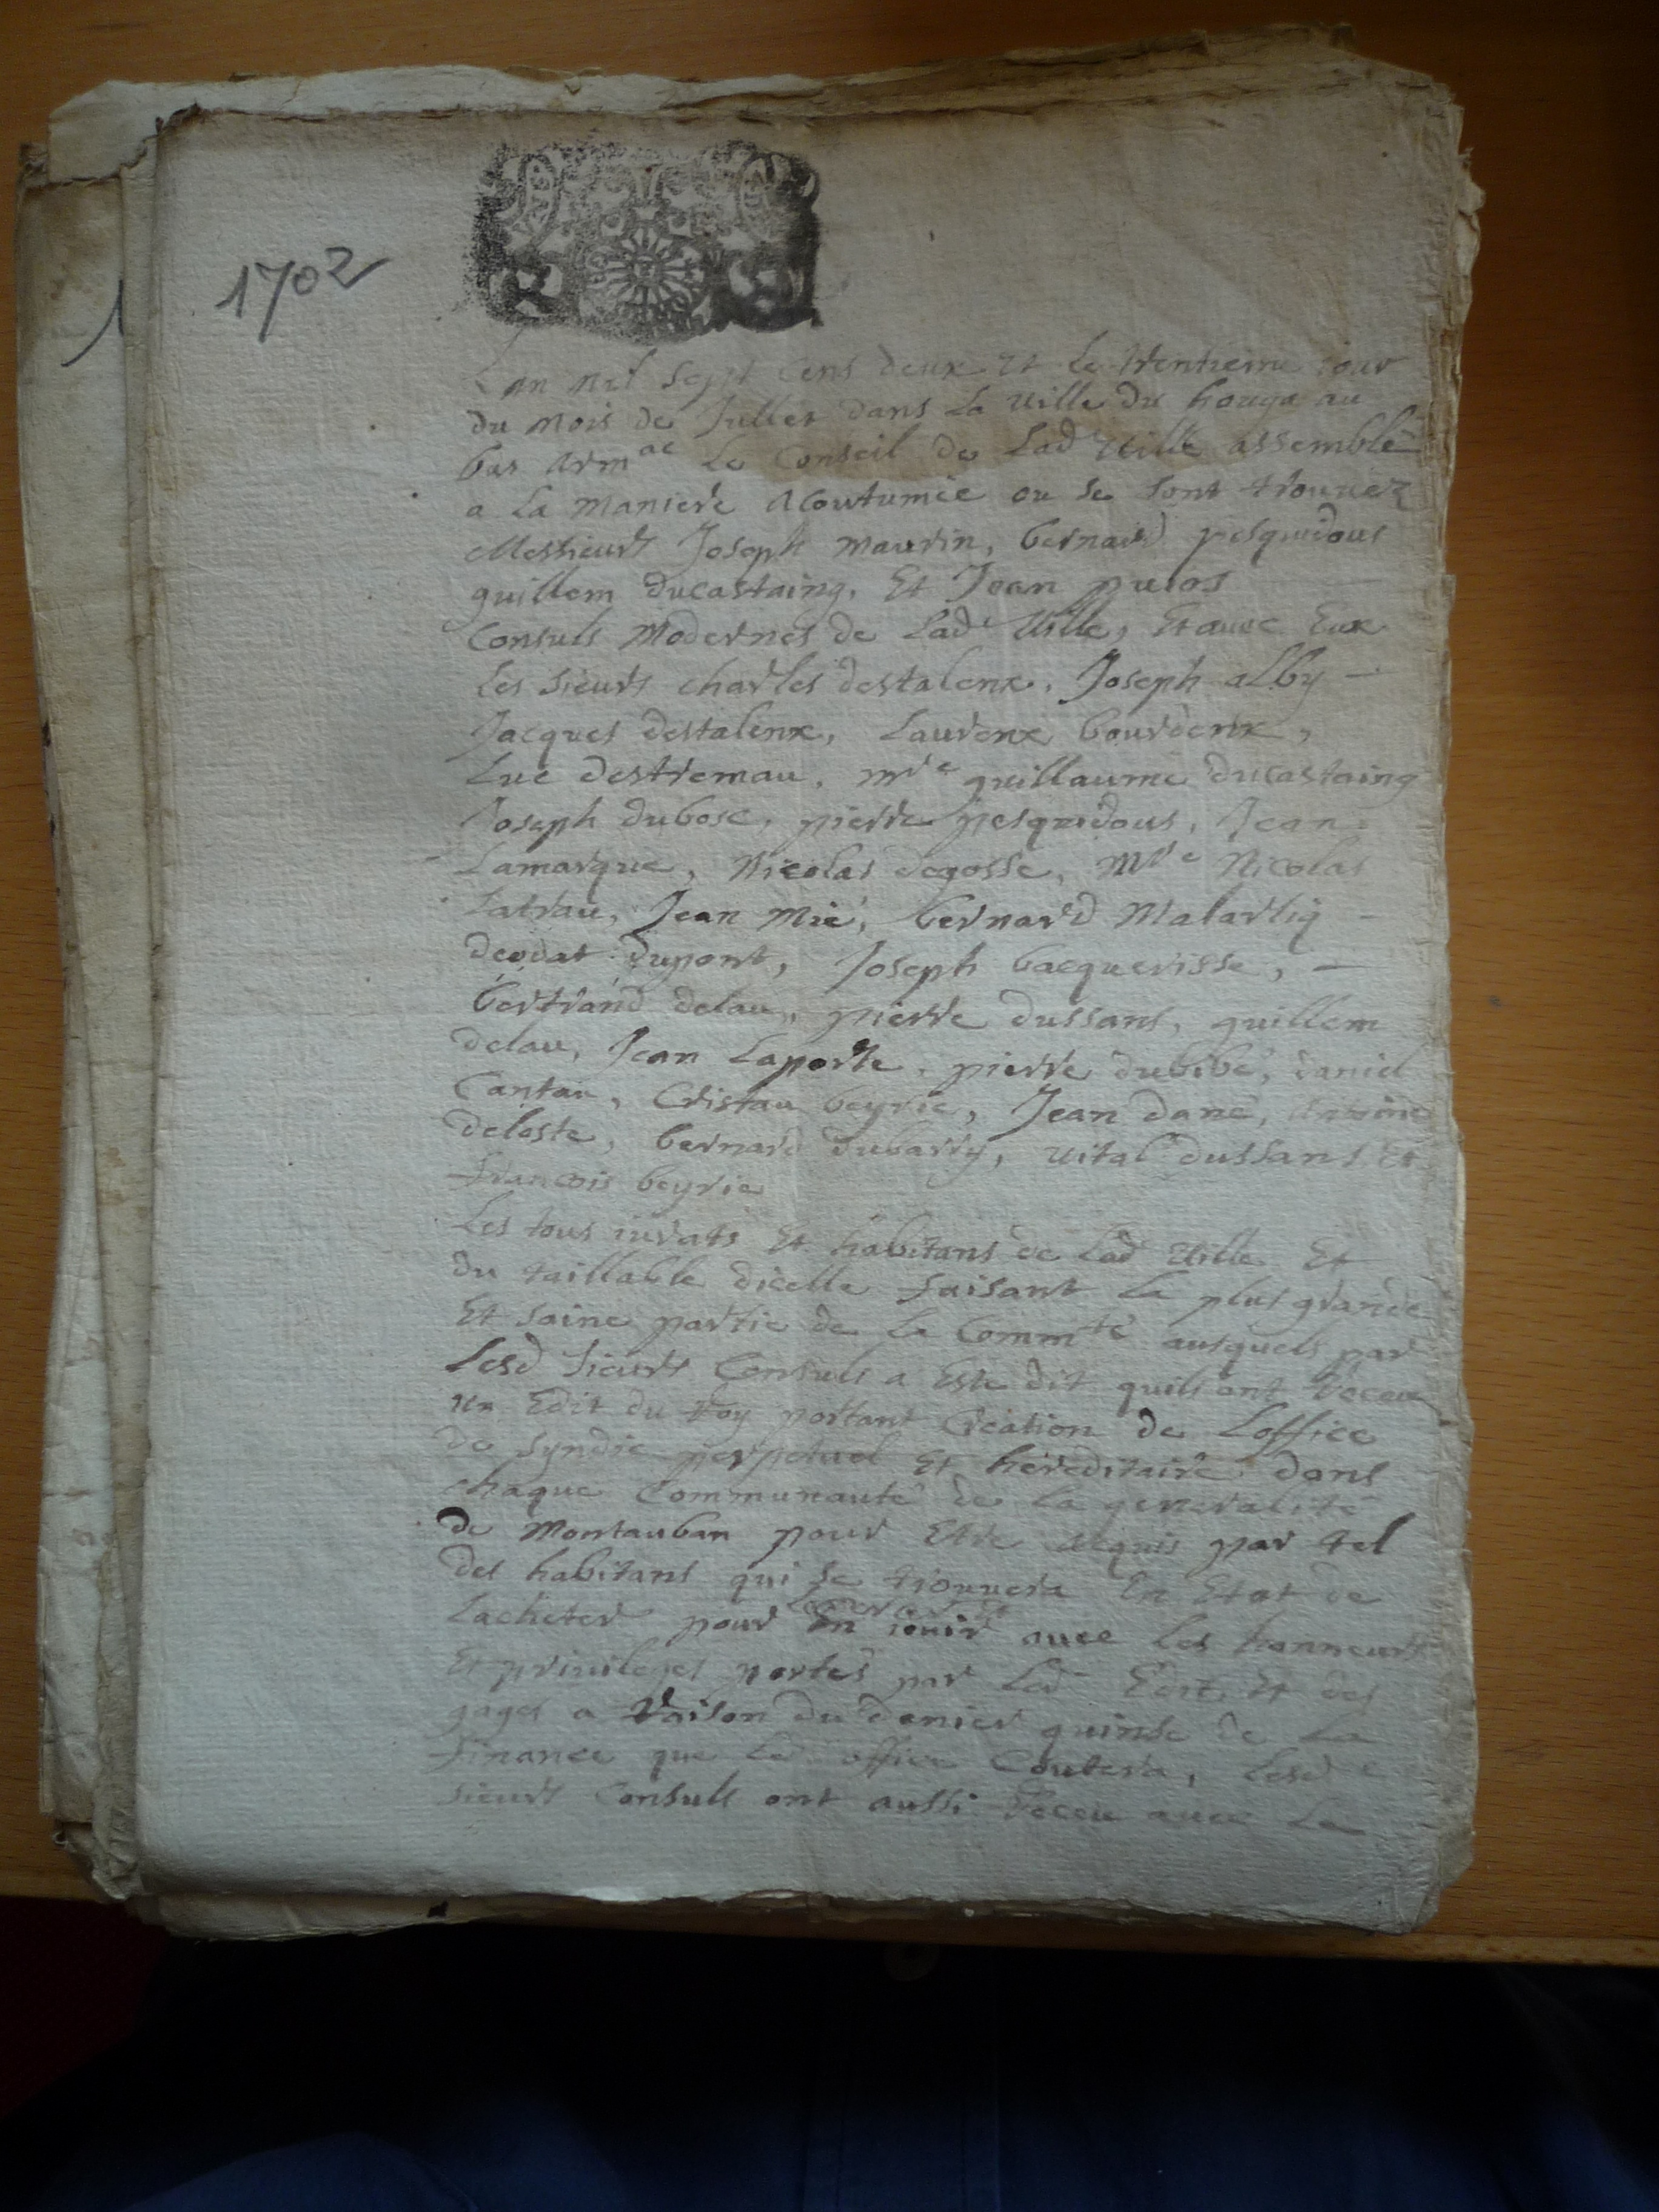 1702
Lan mil sept cens deux et le trentieme iour
du mois de Juller dans La ville du houga au
bas armac Le Conseil de Lad ville assemblé
a La maniere acoutumée ou se sont trouuez
Messieurs Joseph maurin, bernard pesquidous
guillem ducastaing, Et Jean puios
Consuls Modernes de Lade Ville, Et auec Eux
Les sieurs charles destalenx, Joseph alby
Jacques destalenx, Laurens bourdenx,
Luc destremau, mre guillaume ducastaing
Joseph dubosc, pierre pesquidous, Jean
Lamarque, Nicolas degosse, Mre Nicolas
Latrau, Jean mié, bernard Malartiq
deodat dupont, Joseph bacquerisse,
bertrand delau, pierre dussans, guillem
delau, Jean Laporte, pierre dubibé, daniel
Cantau, Cristau beyrie, Jean dané, Antoine
deloste, bernard dubarry, vital dussans Et
francois beyrie
Les tous iurats Et habitans de Lad ville Et
du taillable dicelle faisant La plus grande
Et saine partie de La Commté ausquels par
Lesd sieurs Consuls a Este dit quils ont receu
un Edit du roy portant Creation de Loffice
de syndic perpetuel Et hereditaire dans
chaque Communauté de La generalité
de Montauban pour Etre aquis par tel
des habitans qui se trouuera En Etat de
Lacheter pour En iouir auec Les honneurs
Et priuileges portés par Led Edit, Et des
gages a raison du denier quinse de La
finance que Led office Coutera, Lesd
sieurs Consuls ont aussi receu auec La